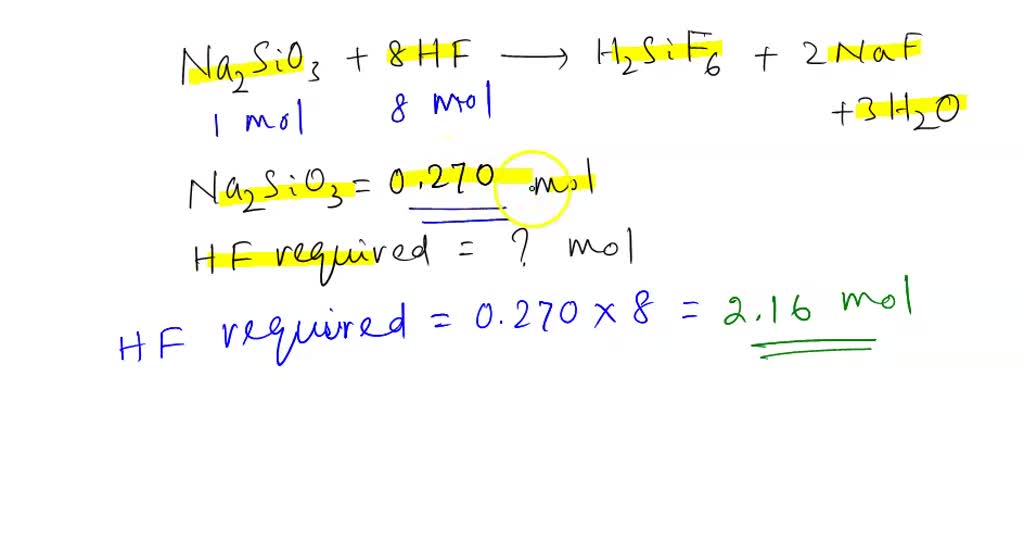 Na₂SiO₃ + 8HF ⟶ H₂SiF₆ + 2NaF
+3H₂O
1 mol 8 mol
Na₂SiO₃ = 0.270 mol
HF required = ? mol
HF required = 0.270 × 8 = 2.16 mol